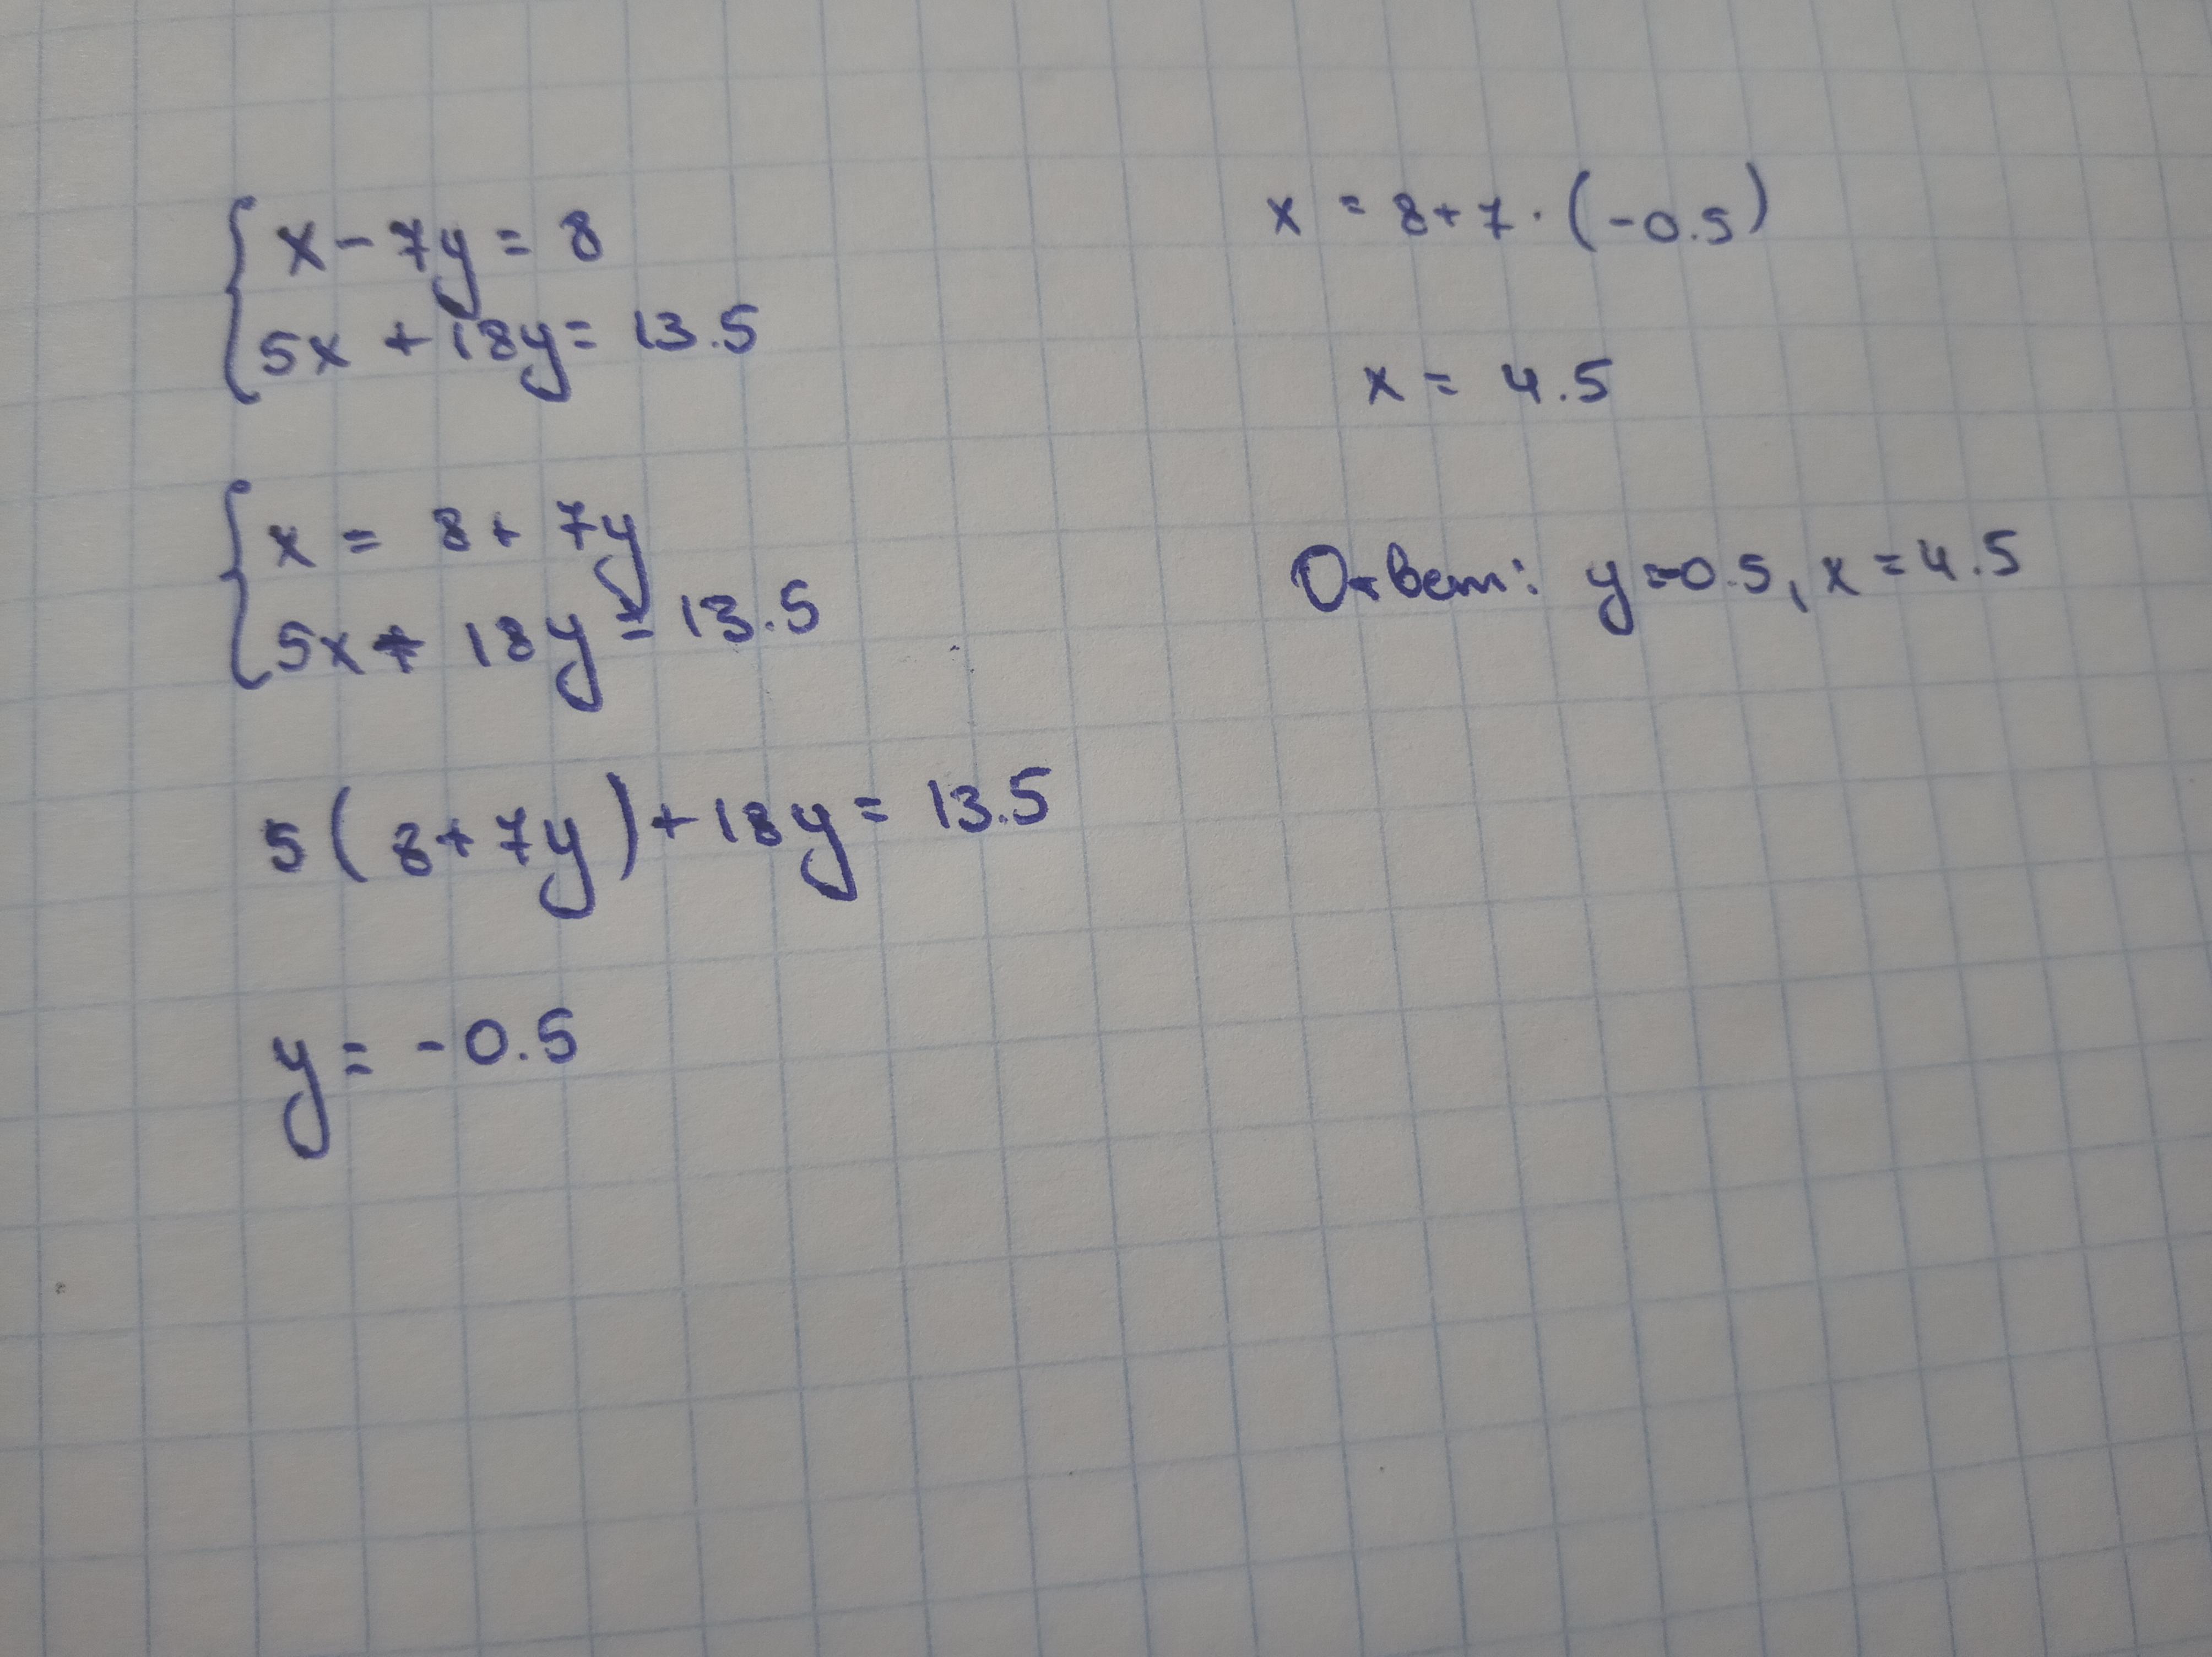 x - 7y = 8
5x + 18y = 13.5
x = 8 + 7y
5x + 18y = 13.5
5(8+7y)+18y = 13.5
y = -0.5
x = 8+7·(-0.5)
x = 4.5
Ответ: y=-0.5, x=4.5